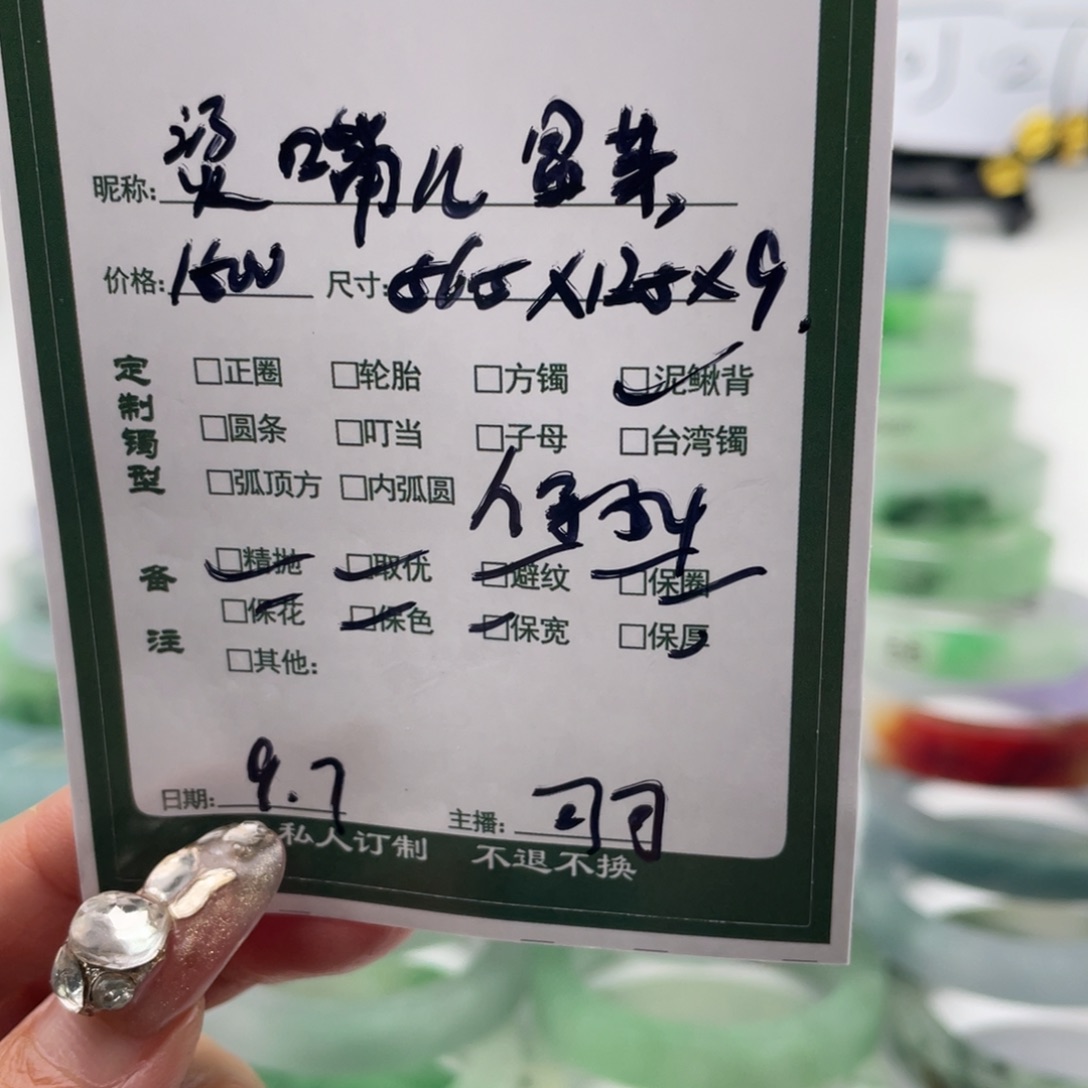 昵称: 烫口嘴儿冒菜
价格: 1500 尺寸: 565×125×9
定制镯型
□正圈 □轮胎 □方镯 □泥鳅背
□圆条 □叮当 □子母 □台湾镯
□弧顶方 □内弧圆
备注
□精抛 □取优 □避纹 □保圈
□保花 □保色 □保宽 □保厚
□其他:
日期: 9.7 主播:
私人订制 不退不换